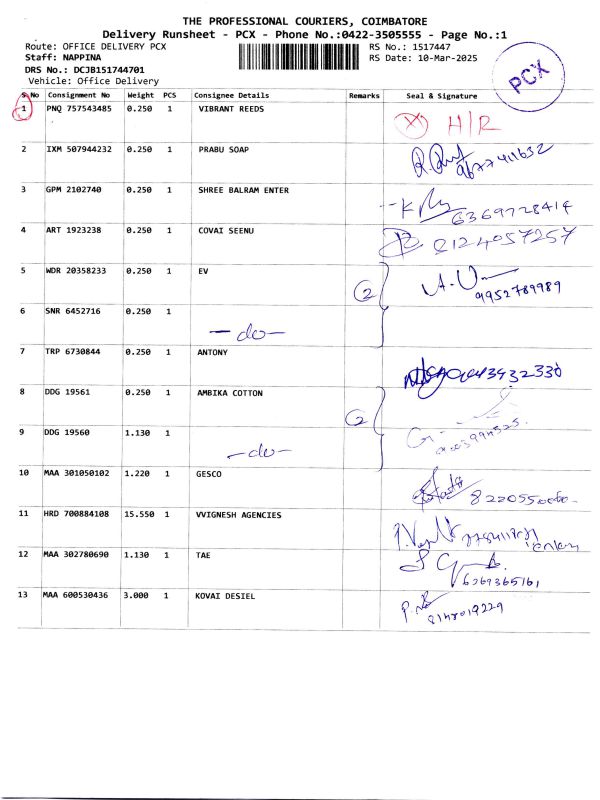 THE PROFESSIONAL COURIERS, COIMBATORE
Delivery Runsheet - PCX - Phone No.:0422-3505555 - Page No.:1
Route: OFFICE DELIVERY PCX RS No.: 1517447
Staff: NAPPINA RS Date: 10-Mar-2025
DRS No.: DCJB151744701
Vehicle: Office Delivery
PCX
S No Consignment No Weight PCS Consignee Details Remarks Seal & Signature
1 PNQ 757543485 0.250 1 VIBRANT REEDS H/R
2 IXM 507944232 0.250 1 PRABU SOAP 9677411632
3 GPM 2102740 0.250 1 SHREE BALRAM ENTER 6369728414
4 ART 1923238 0.250 1 COVAI SEENU 8124057257
5 WDR 20358233 0.250 1 EV 2 9952789989
6 SNR 6452716 0.250 1 -do-
7 TRP 6730844 0.250 1 ANTONY
8 DDG 19561 0.250 1 AMBIKA COTTON 2
9 DDG 19560 1.130 1 -do-
10 MAA 301050102 1.220 1 GESCO
11 HRD 700884108 15.550 1 VVIGNESH AGENCIES
12 MAA 302780690 1.130 1 TAE 6369365161
13 MAA 600530436 3.000 1 KOVAI DESIEL